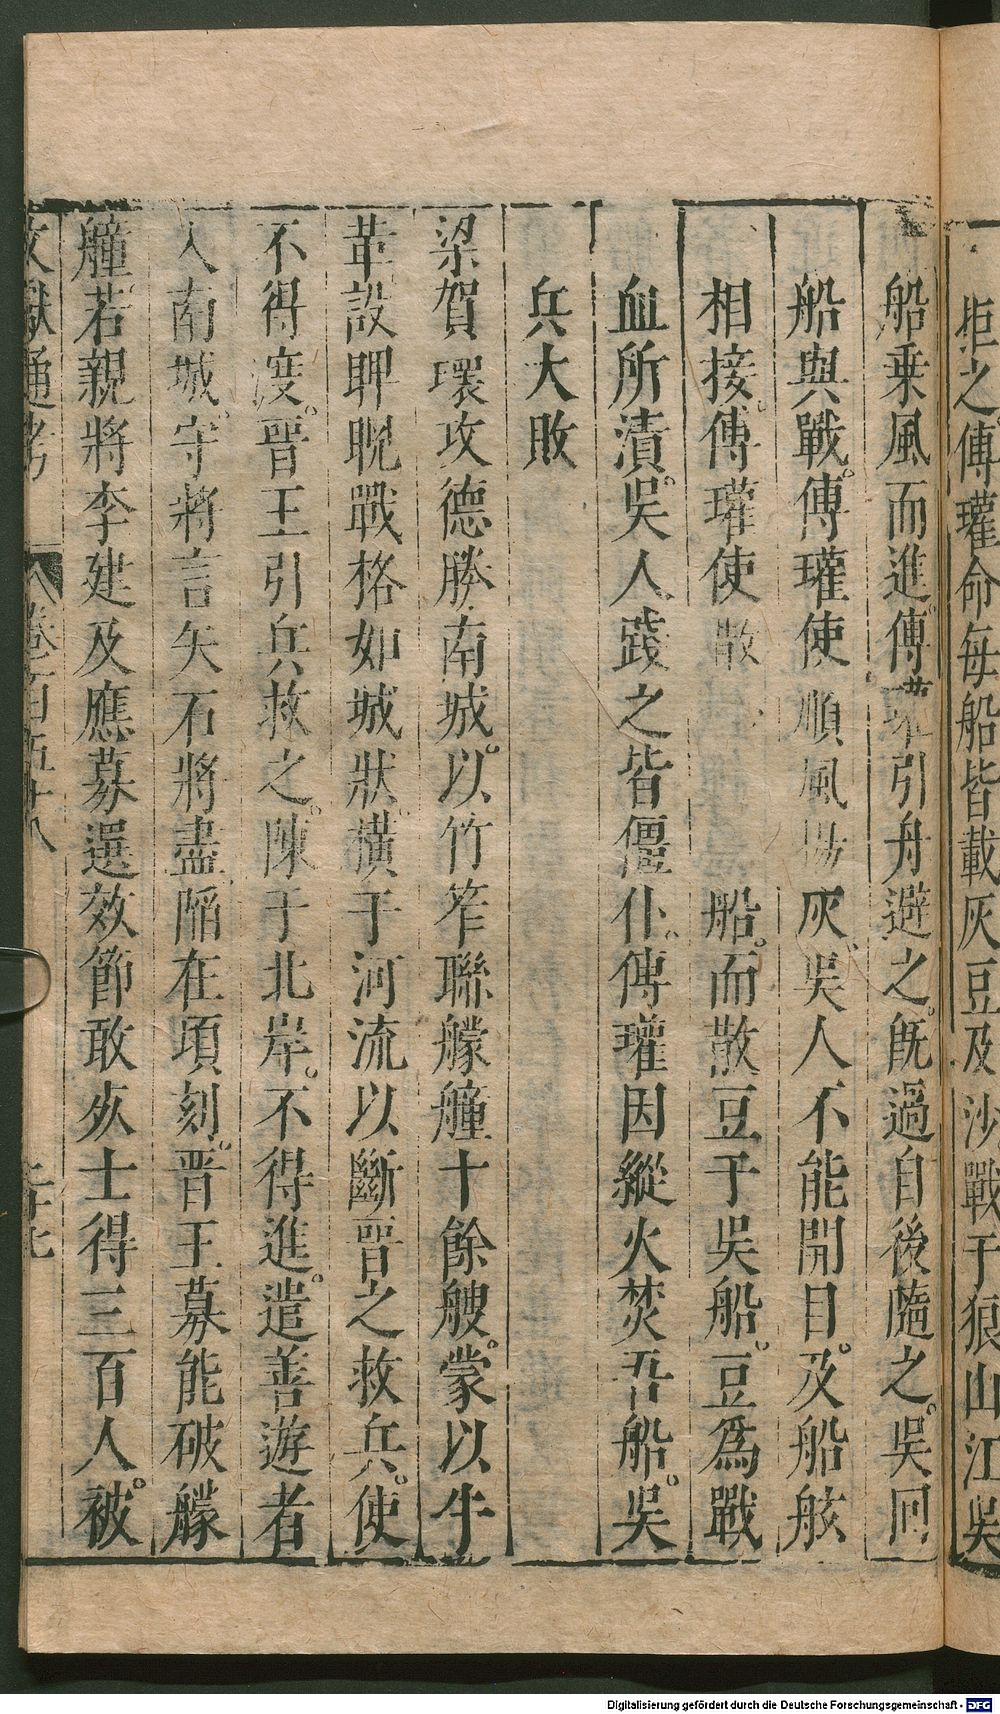 拒之傅瓘命每船皆載灰豆及沙戰于狼山江吳
船乗風而進傅瓘引舟避之旣過自後隨之吳囘
船與戰傅瓘使順風揚灰吳人不能開目及船舷
相接傅瓘使散 船而散豆于吳船豆爲戰
血所漬吳人踐之皆僵仆傅瓘因縱火焚吾船吳
兵大敗
梁賀環攻德勝南城以竹笮聯艨艟十餘艘蒙以牛
革設睥睨戰格如城狀橫于河流以斷晉之救兵使
不得渡晉王引兵救之陳于北岸不得進遣善游者
入南城守將言矢石將盡陷在頃刻晉王募能破艨
艟若親將李建及應募選效節敢死士得三百人被
文獻通考 卷一百五十八 二十七
Digitalisierung gefördert durch die Deutsche Forschungsgemeinschaft - DFG